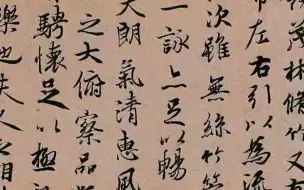 茂林脩
帶左右引以為流
次雖無絲竹管
一詠亦足以暢
天朗氣清惠風
之大俯察品
騁懷足以極
樂也夫人之相